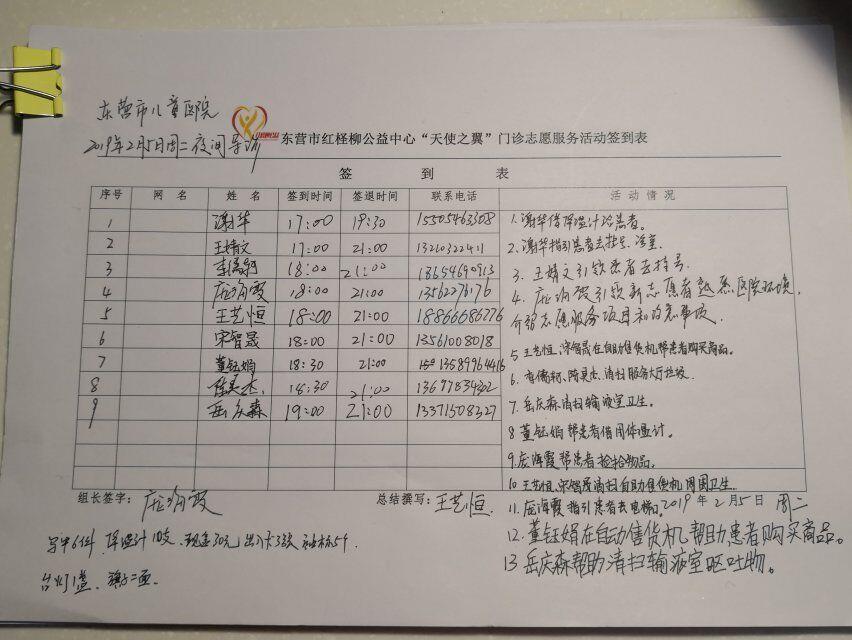 东营市儿童医院
2019年2月5日周二夜间导诊
东营市红柽柳公益中心“天使之翼”门诊志愿服务活动签到表
签 到 表
序号 网 名 姓 名 签到时间 签退时间 联系电话 活动情况
1 谢华 17:00 19:30 15505463308
2 王婧文 17:00 21:00 13210322411
3 18:00 21:00 18654690913
4 庞海霞 18:00 21:00 13562276176
5 王艺恒 18:00 21:00 18866686776
6 宋智晟 18:00 21:00 13561008018
7 董钰娟 18:30 21:00 13589964416
8 18:30 21:00 13697834302
9 岳庆森 19:00 21:00 13371508327
1.谢华借体温计给患者。
2.谢华指引患者去
3.王婧文引领患者去挂号
4.庞海霞引领新志愿者熟悉医院环境,
介绍志愿服务项目和注意事项。
5.王艺恒、宋智晟在自助售货机帮患者购买商品。
6.清扫服务大厅垃圾
7.岳庆森清扫输液室卫生。
8.董钰娟帮患者借用体温计。
9.庞海霞帮患者捡拾物品。
10.王艺恒、宋智晟清扫自助售货机周围卫生.
11.庞海霞指引患者去电梯口。
组长签字: 庞海霞 总结撰写: 王艺恒 2019年2月5日 周二
12.董钰娟在自动售货机帮助患者购买商品。
13.岳庆森帮助清扫输液室呕吐物。
马甲6件 体温计10支、现金30元 出入卡3张 袖标5个
台灯1盏、旗子二面